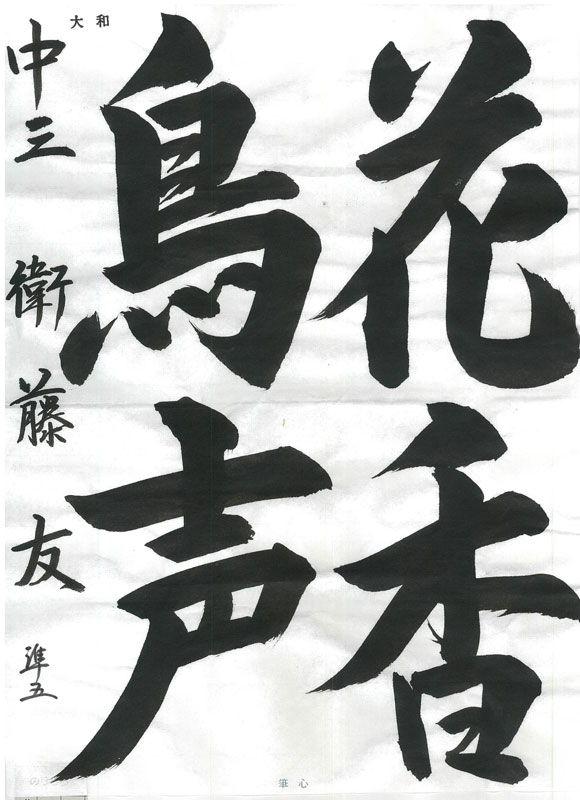 花香
鳥声
中三 衛藤 友 準五
大和
筆心